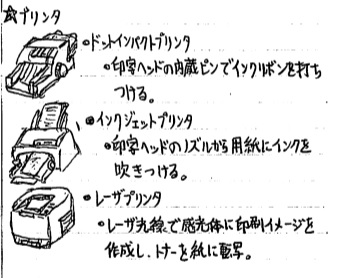 ☆プリンタ
•ドットインパクトプリンタ
•印字ヘッドの内蔵ピンでインクリボンを打ち
つける。
•インクジェットプリンタ
•印字ヘッドのノズルから用紙にインクを
吹きつける。
•レーザプリンタ
•レーザ光線で感光体に印刷イメージを
作成し、トナーを紙に転写。